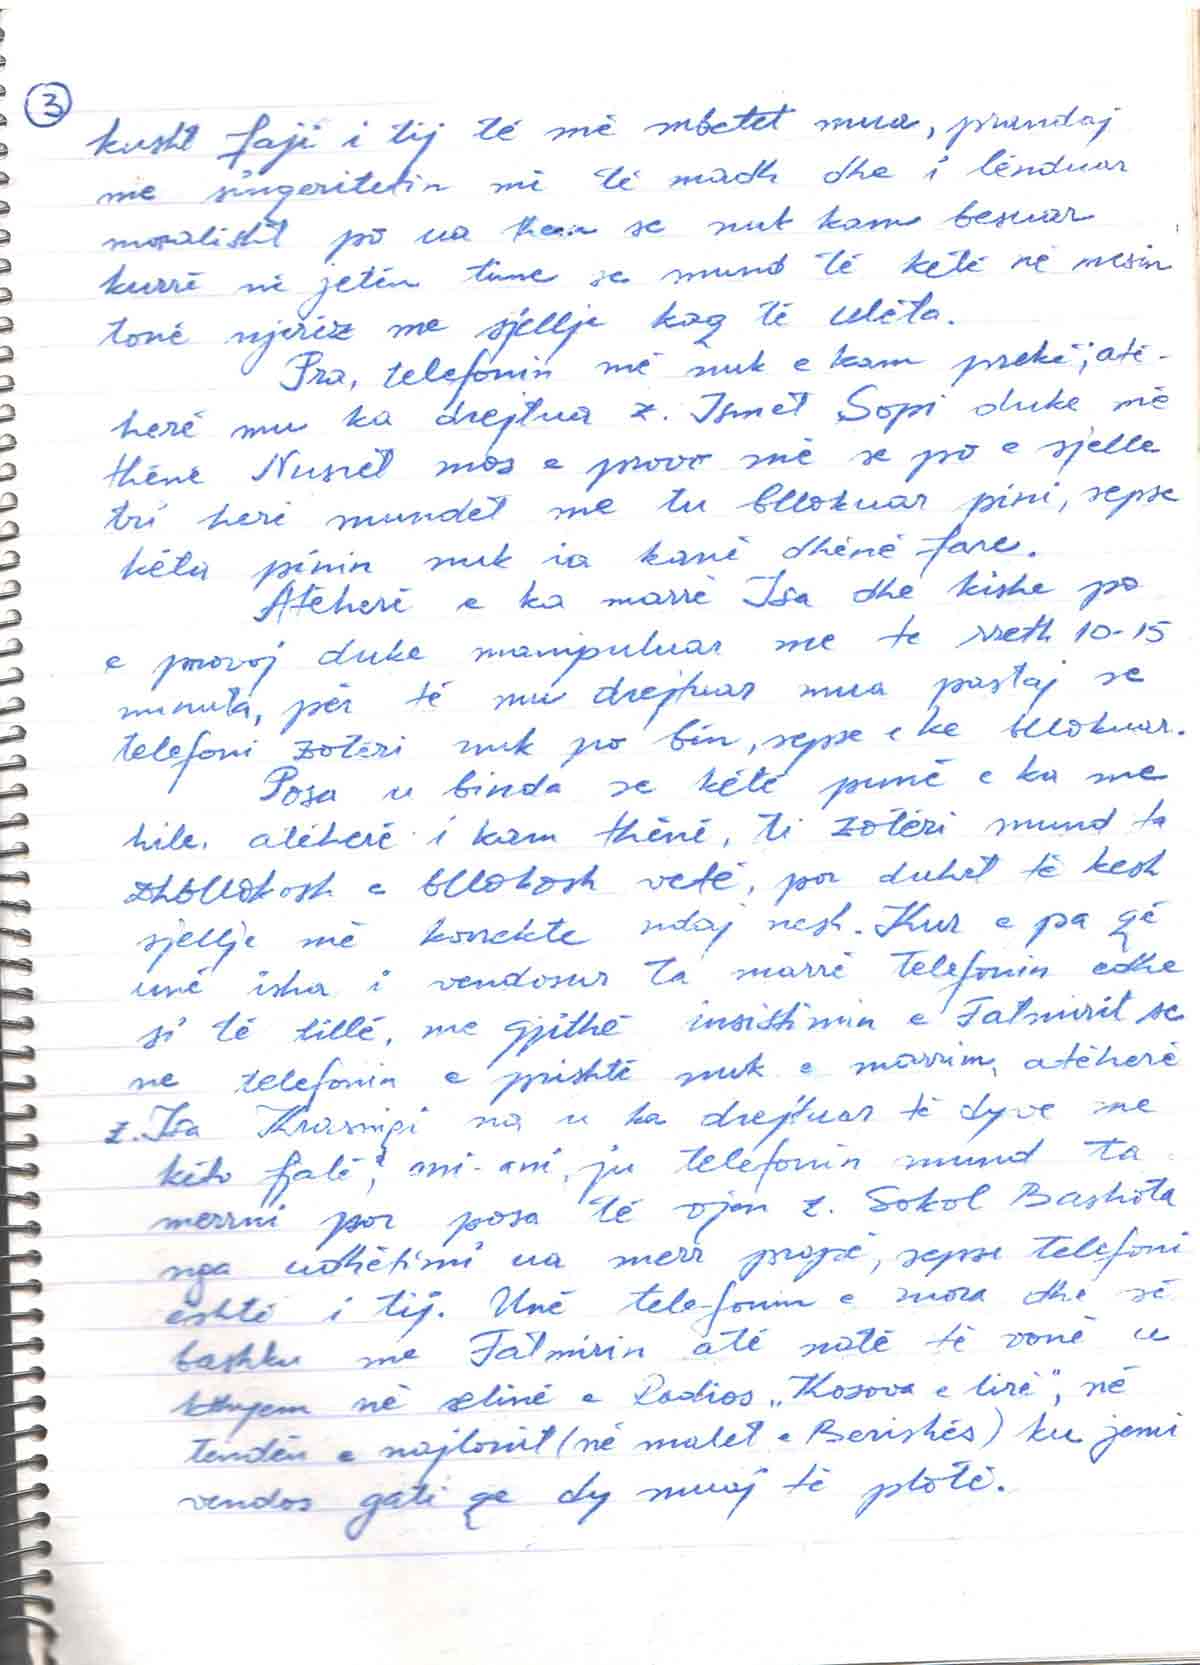 3
kusht faji i tij të më mbetet mua, prandaj
me singeritetin më të madh dhe i lënduar
moralisht po ua them se nuk kam besuar
kurrë në jetën time se mund të këtë në mesin
tonë njerëz me sjellje kaq të ulëta.
Pra, telefonin më nuk e kam prekë; atë-
herë mu ka drejtua z. Ismet Sopi duke më
thënë Nusret mos e provo më se po e sjelle
tri herë mundët me tu bllokuar pini, sepse
këta pinin nuk ia kanë dhënë fare.
Atëherë e ka marrë Isa dhe kishe po
e provoj duke manipuluar me te rreth 10-15
minuta, për të mu drejtuar mua pastaj se
telefoni zotëri nuk po bën, sepse e ke bllokuar.
Posa u binda se këtë punë e ka me
hile, atëherë i kam thënë, ti zotëri mund ta
zhbllokosh e bllokosh vetë, por duhet të kesh
sjellje më korrekte ndaj nesh. Kur e pa që
unë isha i vendosur ta marrë telefonin edhe
si të tillë, me gjithë insistimin e Fatmirit se
ne telefonin e prishtë nuk e marrim, atëherë
z. Isa Krasniqi na u ka drejtuar të dyve me
këto fjalë; ani-ani, ju telefonin mund ta
merrni por posa të vjen z. Sokol Bashota
nga udhëtimi ua merr prapë, sepse telefoni
është i tij. Unë telefonin e mora dhe së
bashku me Fatmirin atë natë të vonë u
kthyem në selinë e Radios „Kosova e lirë", në
tendën e najlonit (në malet e Berishës) ku jemi
vendos gati qe dy muaj të plotë.